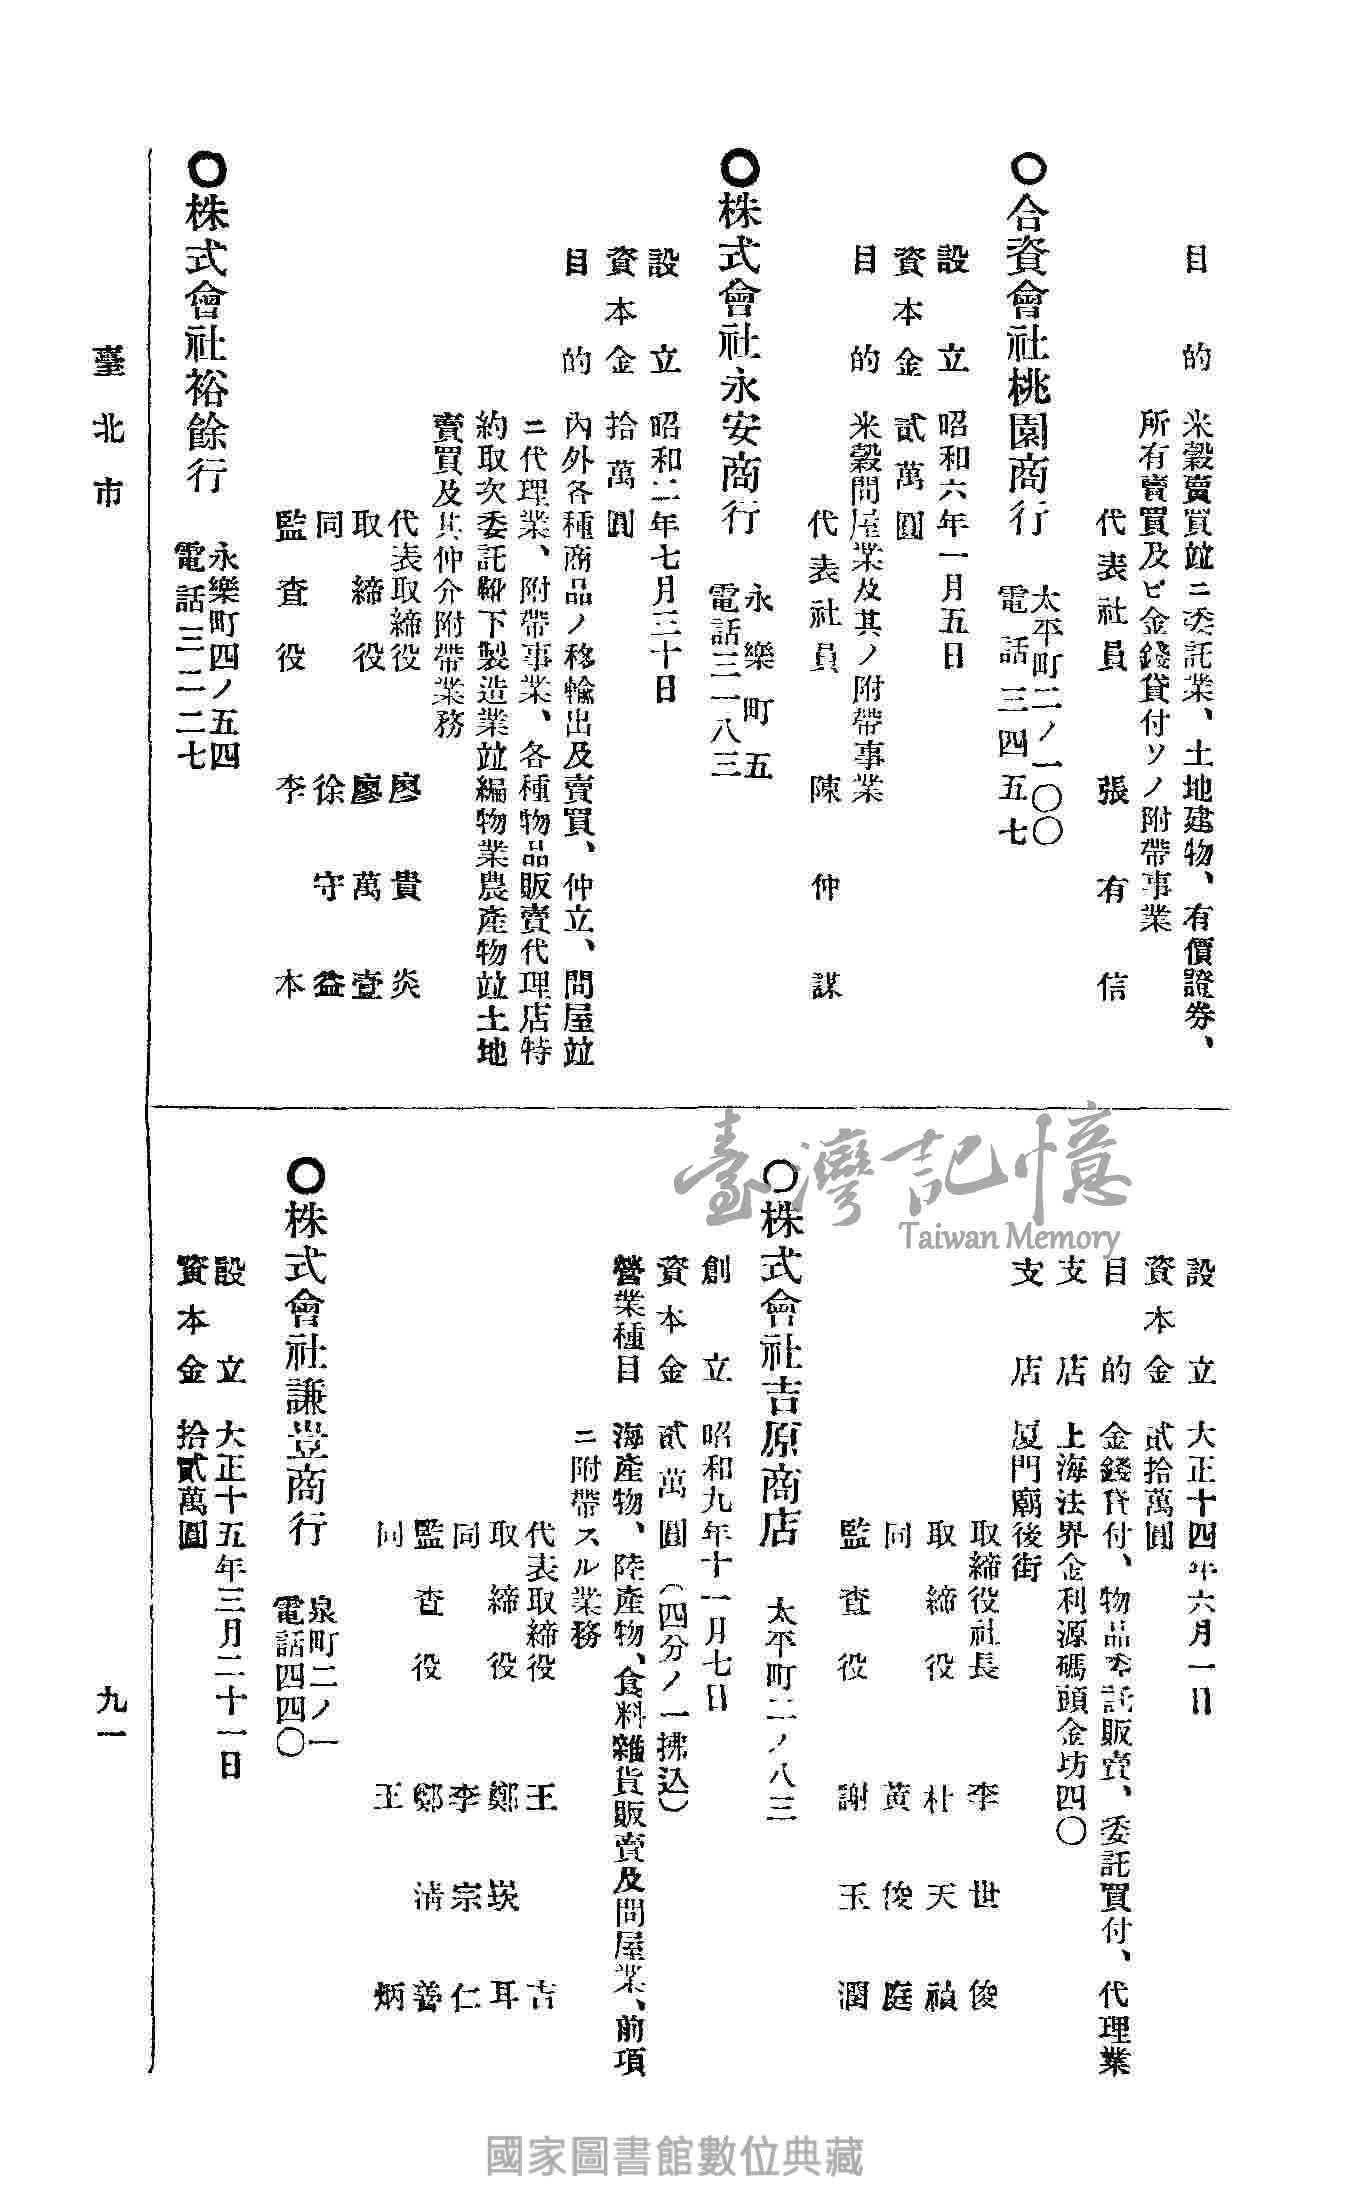 目的 米穀賣買竝ニ委託業、土地建物、有價證券、
所有賣買及ビ金錢貸付ソノ附帶事業
代表社員 張有信
○合資會社桃園商行 太平町二ノ一〇〇
電話三四五七
設立 昭和六年一月五日
資本金 貳萬圓
目的 米穀問屋業及其ノ附帶事業
代表社員 陳仲謀
○株式會社永安商行 永樂町五
電話三一八三
設立 昭和二年七月三十日
資本金 拾萬圓
目的 內外各種商品ノ移輸出及賣買、仲立、問屋竝
ニ代理業、附帶事業、各種物品販賣代理店特
約取次委託靴下製造業竝編物業農產物竝土地
賣買及其仲介附帶業務
代表取締役 廖貴炎
取締役 廖萬壹
同 徐守益
監查役 李本
○株式會社裕餘行 永樂町四ノ五四
電話三二二七
設立 大正十四年六月一日
資本金 貳拾萬圓
目的 金錢貸付、物品委託販賣、委託買付、代理業
支店 上海法界金利源碼頭金坊四〇
支店 厦門廟後街
取締役社長 李世俊
取締役 杜天禎
同 黃俊庭
監查役 謝玉潤
○株式會社吉原商店 太平町二ノ八三
創立 昭和九年十一月七日
資本金 貳萬圓(四分ノ一拂込)
營業種目 海產物、陸產物、食料雜貨販賣及問屋業、前項
ニ附帶スル業務
代表取締役 王吉
取締役 鄭崁耳
同 李宗仁
監查役 鄭淸善
同 王炳
○株式會社謙豊商行 泉町二ノ一
電話四四〇
設立 大正十五年三月二十一日
資本金 拾貳萬圓
臺北市
九一
臺灣記憶
Taiwan Memory
國家圖書館數位典藏